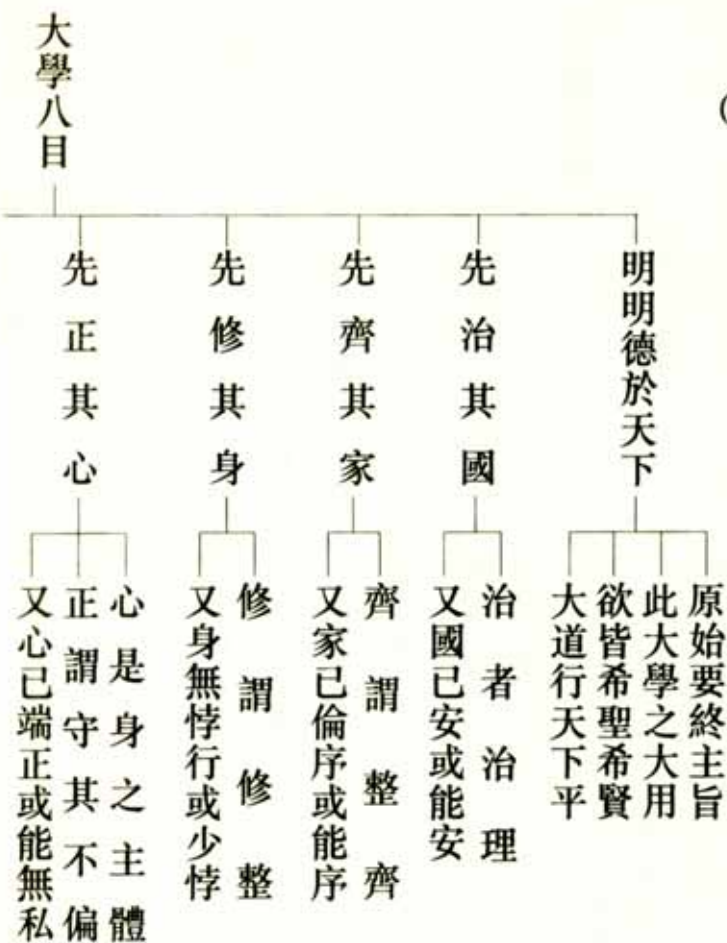 大學八目
明明德於天下
原始要終主旨
此大學之大用
欲皆希聖希賢
大道行天下平
先治其國
治者治理
又國已安或能安
先齊其家
齊謂整齊
又家已倫序或能序
先修其身
修謂修整
又身無悖行或少悖
先正其心
心是身之主體
正謂守其不偏
又心已端正或能無私